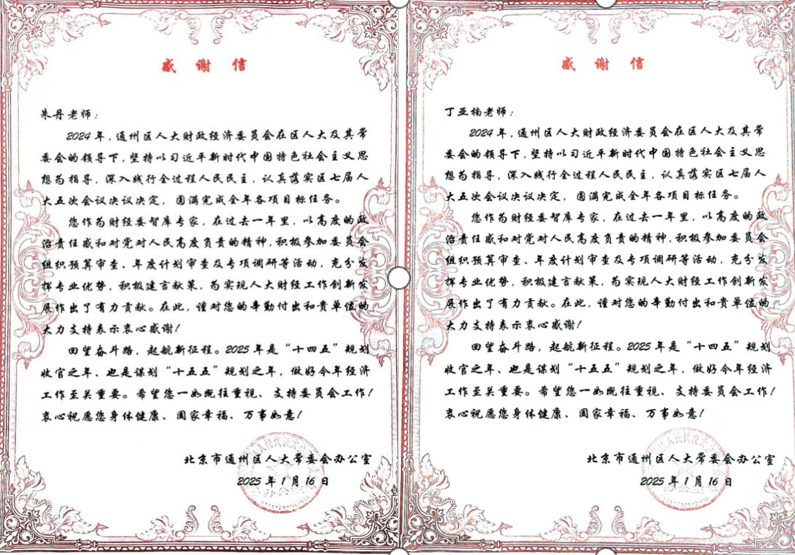 感谢信
朱丹老师：
2024年，通州区人大财政经济委员会在区人大及其常
委会的领导下，坚持以习近平新时代中国特色社会主义思
想为指导，深入践行全过程人民民主，认真落实区七届人
大五次会议决议决定，圆满完成全年各项目标任务。
您作为财经委智库专家，在过去一年里，以高度的政
治责任感和对党对人民高度负责的精神，积极参加委员会
组织预算审查、年度计划审查及专项调研等活动，充分发
挥专业优势，积极建言献策，为实现人大财经工作创新发
展作出了有力贡献。在此，谨对您的辛勤付出和贵单位的
大力支持表示衷心感谢！
回望奋斗路，起航新征程。2025年是“十四五”规划
收官之年、也是谋划“十五五”规划之年，做好今年经济
工作至关重要。希望您一如既往重视、支持委员会工作！
衷心祝愿您身体健康、阖家幸福、万事如意！
北京市通州区人大常委会办公室
2025年1月16日
感谢信
丁亚楠老师：
2024年，通州区人大财政经济委员会在区人大及其常
委会的领导下，坚持以习近平新时代中国特色社会主义思
想为指导，深入践行全过程人民民主，认真落实区七届人
大五次会议决议决定，圆满完成全年各项目标任务。
您作为财经委智库专家，在过去一年里，以高度的政
治责任感和对党对人民高度负责的精神，积极参加委员会
组织预算审查、年度计划审查及专项调研等活动，充分发
挥专业优势，积极建言献策，为实现人大财经工作创新发
展作出了有力贡献。在此，谨对您的辛勤付出和贵单位的
大力支持表示衷心感谢！
回望奋斗路，起航新征程。2025年是“十四五”规划
收官之年、也是谋划“十五五”规划之年，做好今年经济
工作至关重要。希望您一如既往重视、支持委员会工作！
衷心祝愿您身体健康、阖家幸福、万事如意！
北京市通州区人大常委会办公室
2025年1月16日